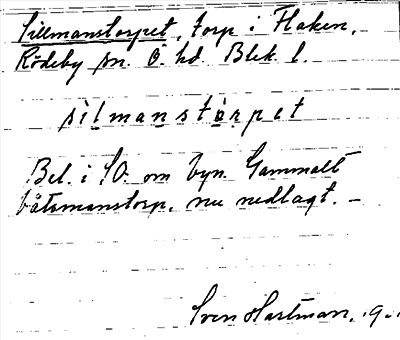 Sillmanstorpet, torp i Flaken,
Rödeby sn. Ö. hd. Blek. l.
silmanstòrpet
Bel. i SO. om byn. Gammalt
båtsmanstorp, nu nedlagt. –
Sven Hartman.